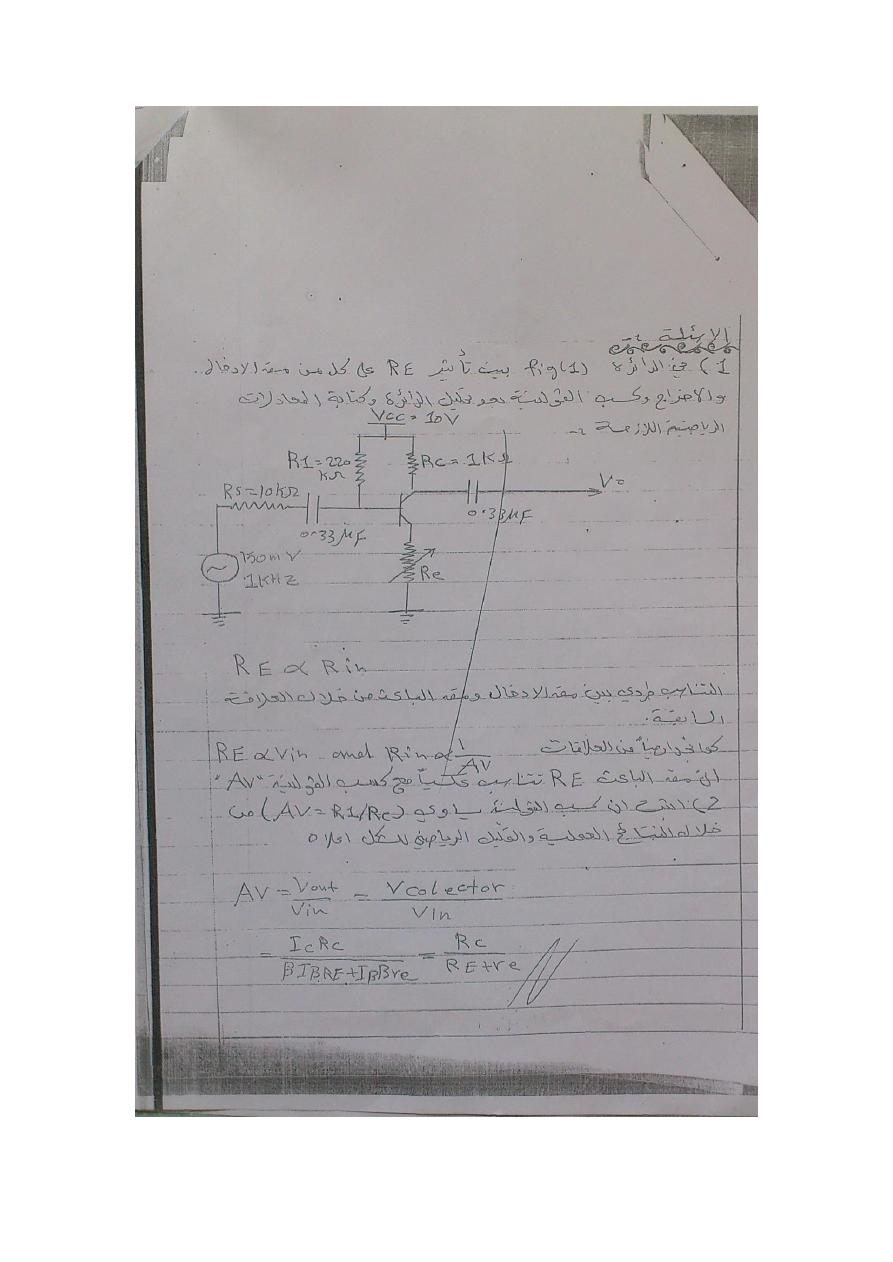 الاسئلة :-
1) في الدائرة fig(1) بين تأثير RE على كل من مقاومة الادخال
والاخراج وكسب الفولتية مع تحليل الدائرة وكتابة المعادلات
الرياضية اللازمة :-
Vcc = 10V
R1=220 KΩ
Rc = 1KΩ
Rs=10KΩ
Vo
0.33µF
0.33µF
150mV
1KHZ
Re
RE ∝ Rin
التناسب طردي بين مقاومة الادخال ومقاومة الباعث من خلال العلاقة
السابقة.
RE ∝ Vin and Rin ∝ 1/AV من العلاقات
RE تتناسب عكسياً مع كسب الفولتية "AV"
2) اشرح ان كسب الفولتية يساوي (AV=R1/Rc) من
خلال النتائج العملية والتحليل الرياضي للشكل اعلاه
AV = Vout/Vin = Vcolector/VIn
= IcRc/βIBRE+IBβre = Rc/RE+re